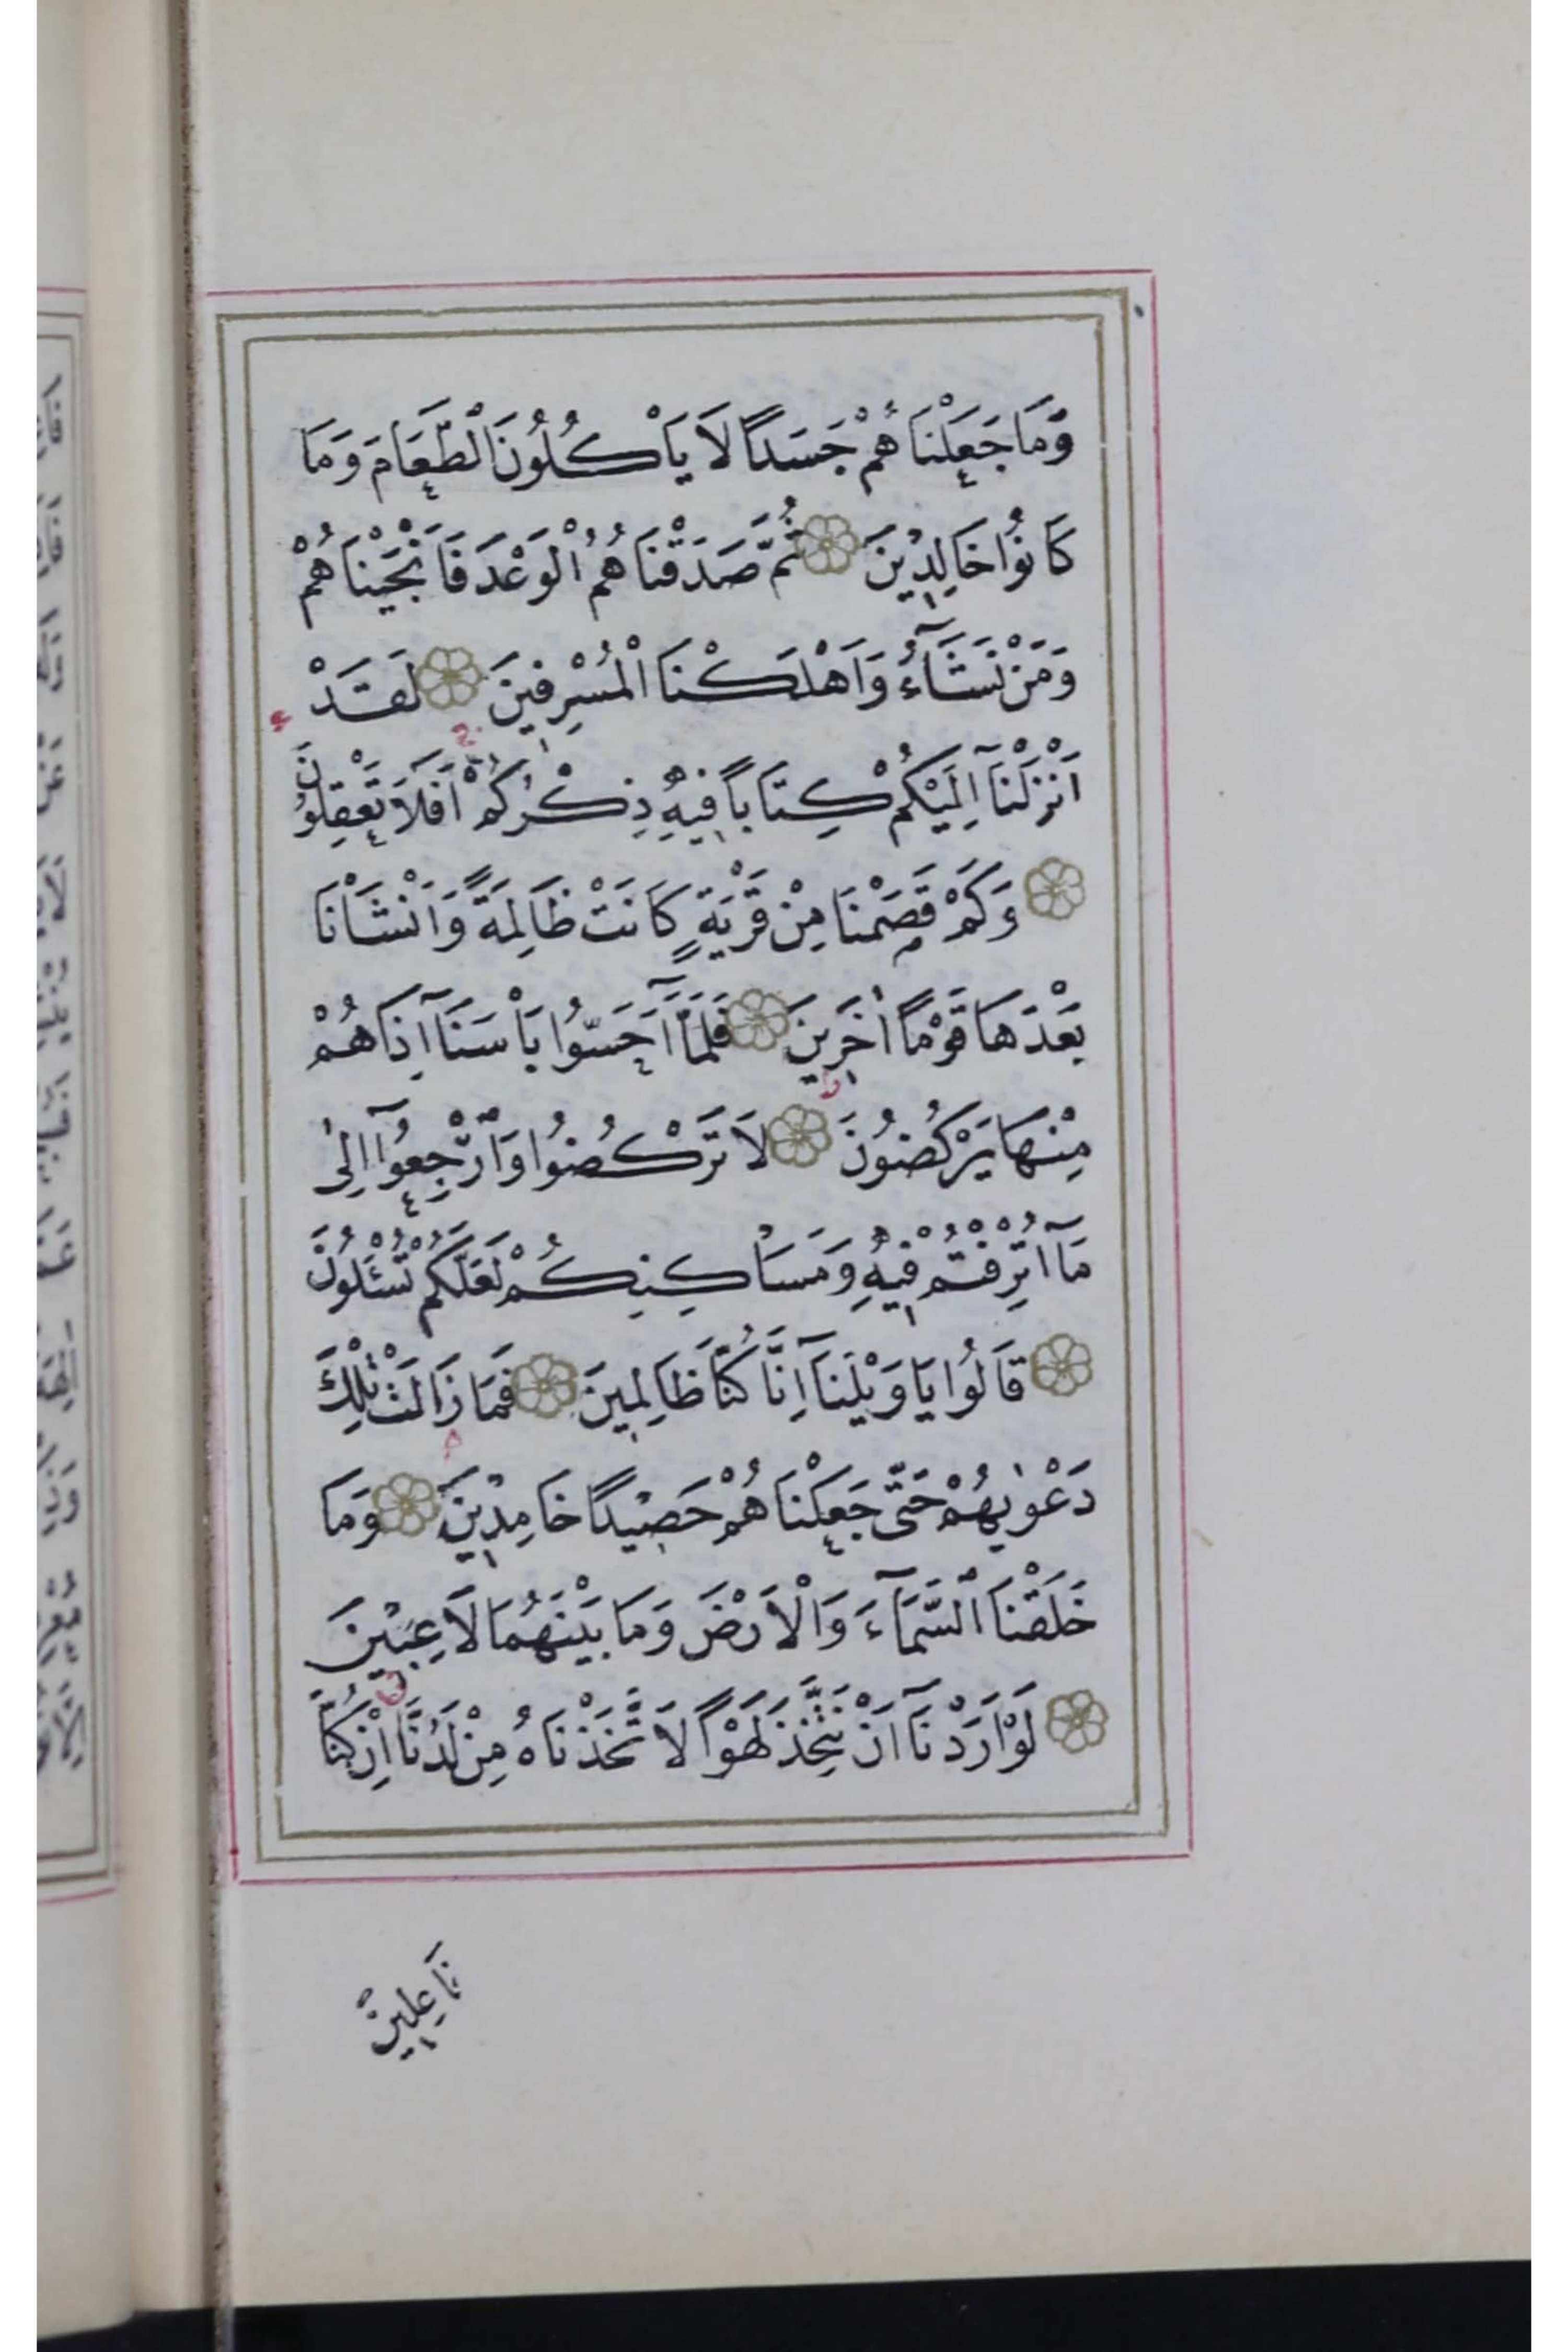 وَمَا جَعَلْنَاهُمْ جَسَدًا لَا يَأْكُلُونَ الطَّعَامَ وَمَا
كَانُوا خَالِدِينَ ثُمَّ صَدَقْنَاهُمُ الْوَعْدَ فَاَنْجَيْنَاهُمْ
وَمَنْ نَشَآءُ وَاَهْلَكْنَا الْمُسْرِفِينَ لَقَدْ
اَنْزَلْنَآ اِلَيْكُمْ كِتَابًا فِيهِ ذِكْرُكُمْ اَفَلَا تَعْقِلُونَ
وَكَمْ قَصَمْنَا مِنْ قَرْيَةٍ كَانَتْ ظَالِمَةً وَاَنْشَأْنَا
بَعْدَهَا قَوْمًا اٰخَرِينَ فَلَمَّآ اَحَسُّوا بَأْسَنَآ اِذَا هُمْ
مِنْهَا يَرْكُضُونَ لَا تَرْكُضُوا وَارْجِعُوٓا اِلٰى
مَآ اُتْرِفْتُمْ فِيهِ وَمَسَاكِنِكُمْ لَعَلَّكُمْ تُسْئَلُونَ
قَالُوا يَا وَيْلَنَآ اِنَّا كُنَّا ظَالِمِينَ فَمَا زَالَتْ تِلْكَ
دَعْوٰيهُمْ حَتّٰى جَعَلْنَاهُمْ حَصِيدًا خَامِدِينَ وَمَا
خَلَقْنَا السَّمَآءَ وَالْاَرْضَ وَمَا بَيْنَهُمَا لَاعِبِينَ
لَوْ اَرَدْنَآ اَنْ نَتَّخِذَ لَهْوًا لَاتَّخَذْنَاهُ مِنْ لَدُنَّا اِنْ كُنَّا
فَاعِلِينَ